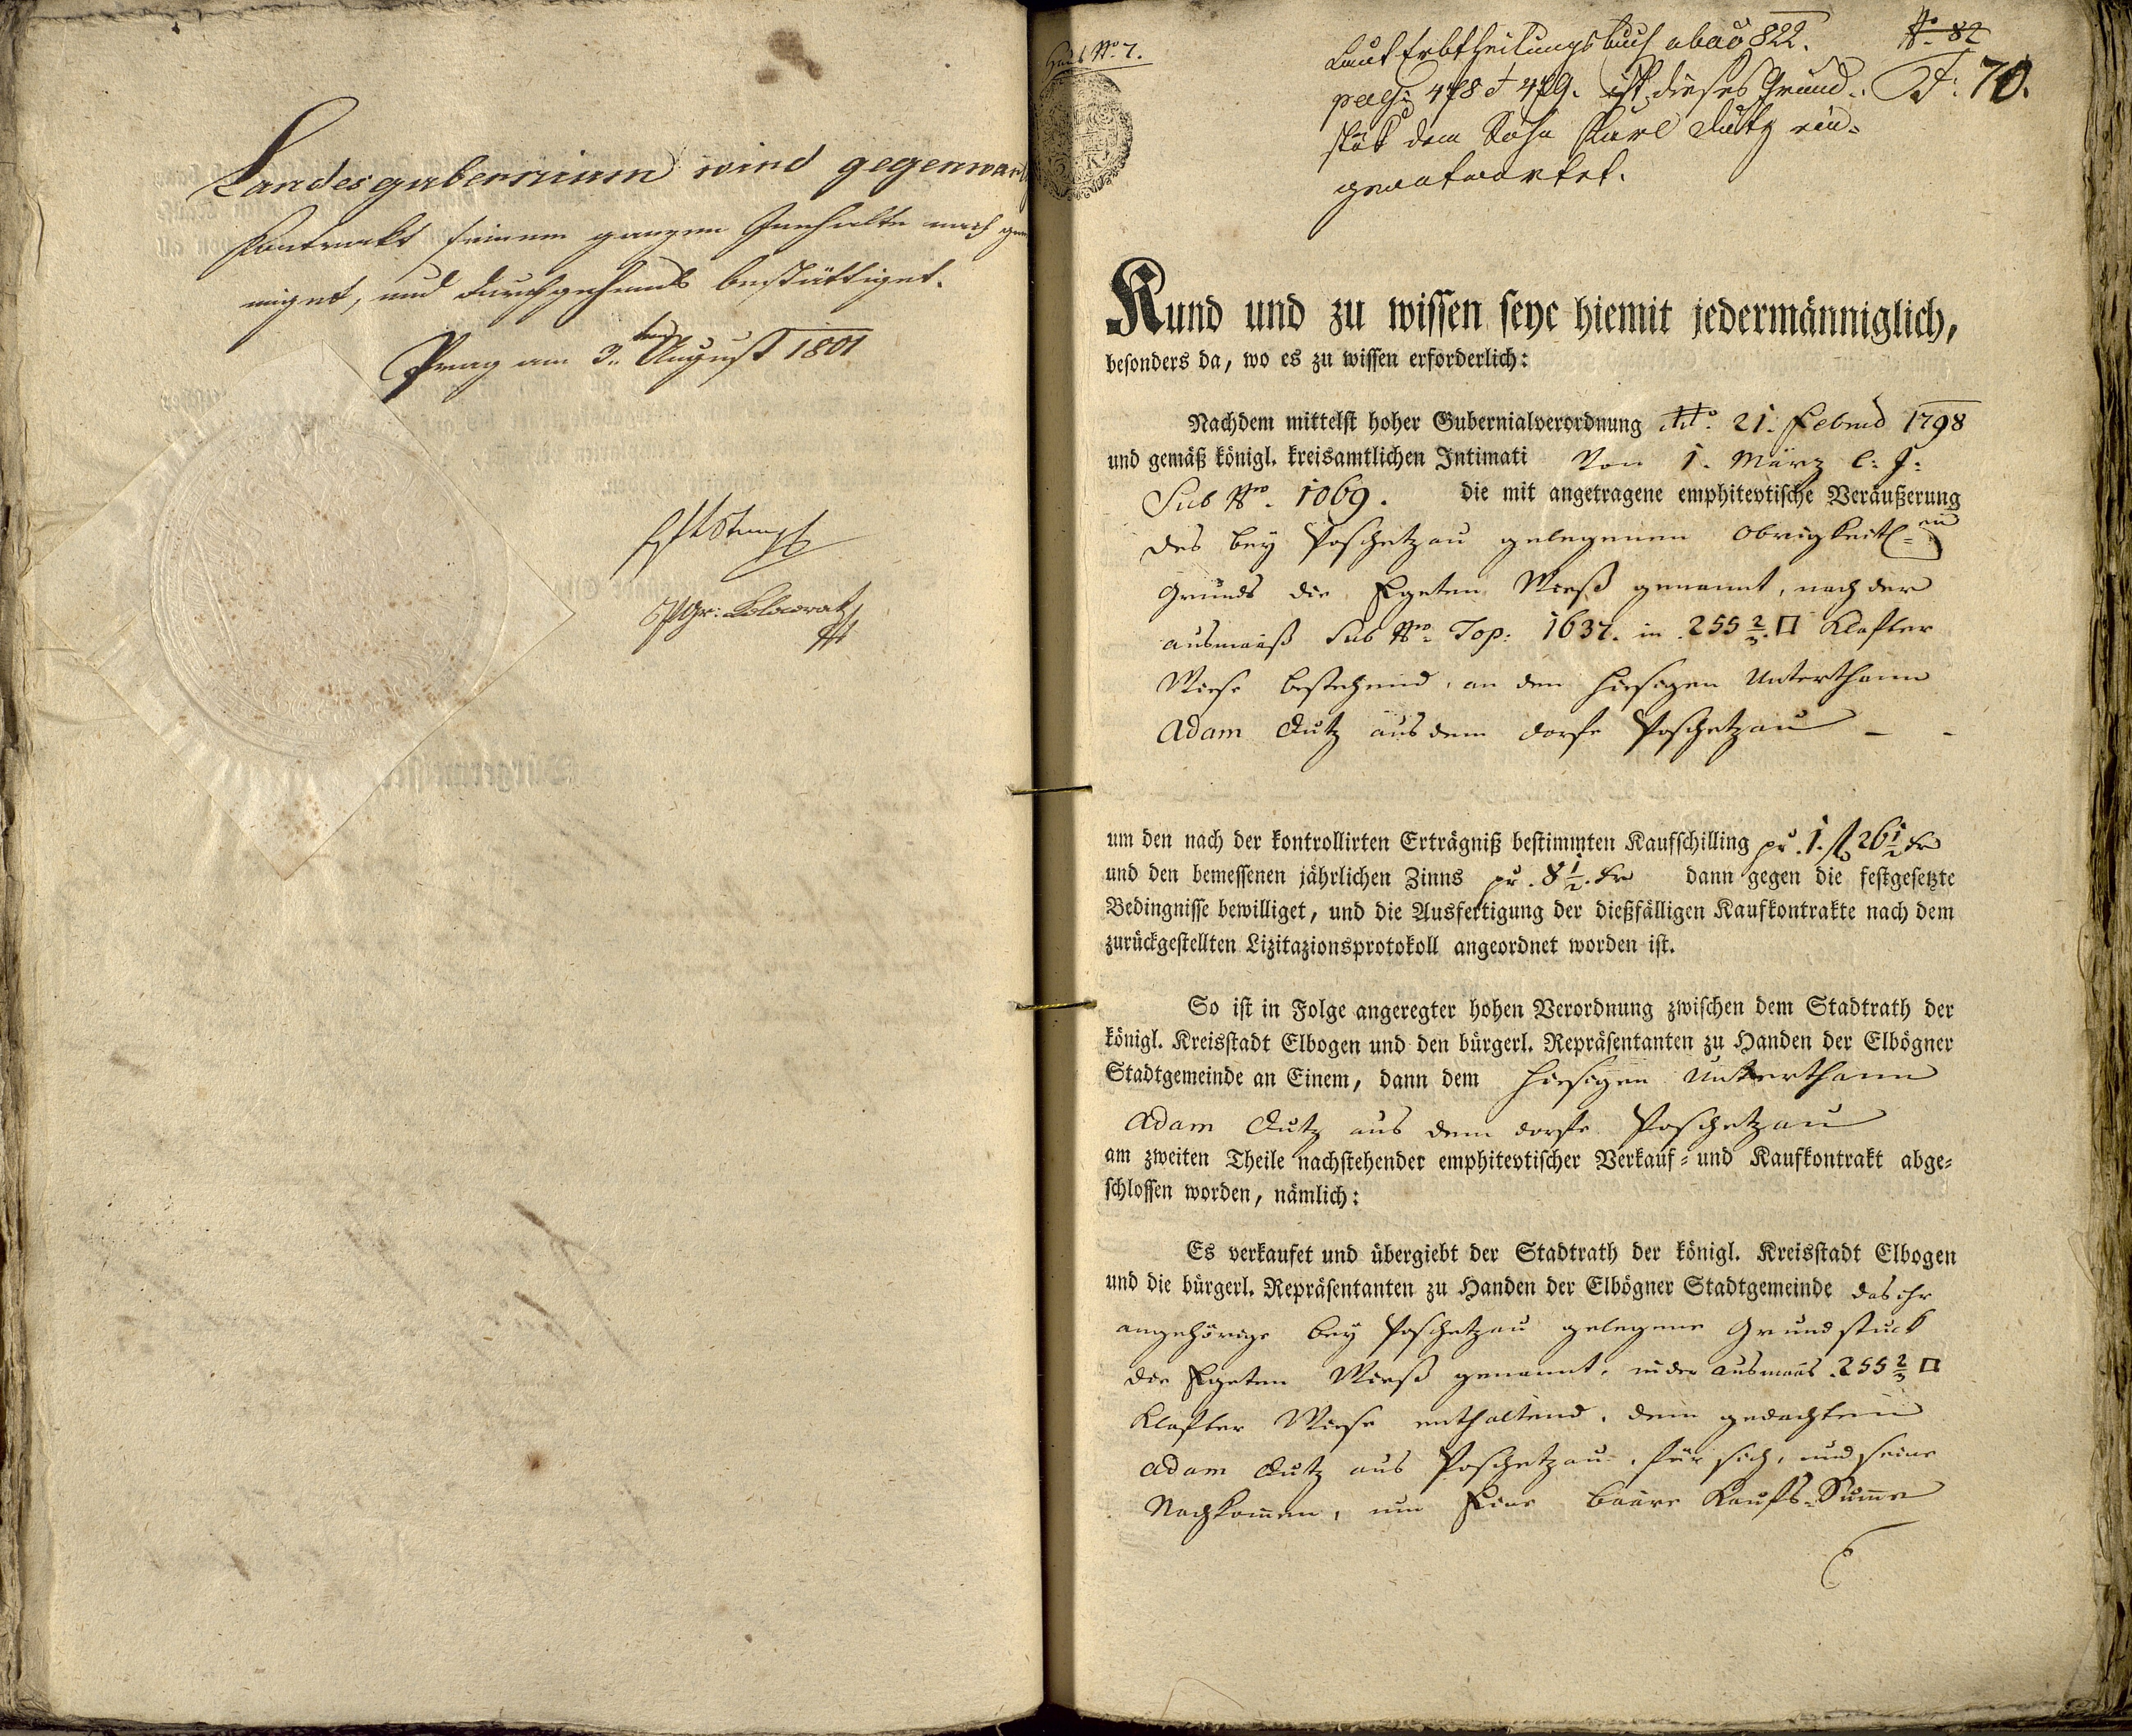 Landesgubernium wird gegenwärt
Kontrakt seinem ganzen Innhalte nach geneh
miget, und durchgehends bestättiget.
Prag am 3.ten August 1801
Haus Nro. 7.
Laut Erbtheilungsbuch ab ao 822.
pag: 478 & 479. ist dieses Grund-
stük dem Sohn Karl Lutz ein-
geantwortet.
No. 82
F: 70.
Kund und zu wissen seye hiemit jedermänniglich,
besonders da, wo es zu wissen erforderlich:
Nachdem mittelst hoher Gubernialverordnung dto. 21. Febr. 1798
und gemäß königl. kreisamtlichen Intimati Von 1. März l: J:
Sub Nro. 1069. die mit angetragene emphitevtische Veräußerung
des bey Poschetzau gelegenen Obrigkeitl.en
Grunds die Egeten Wieß genannt, nach der
ausmaaß Sub Nro. Top: 1637. in 255 2/3 □ Klafter
Wiese bestehend, an den hiesigen Unterthann
Adam Lutz aus dem dorfe Poschetzau - -
um den nach der kontrollirten Erträgniß bestimmten Kaufschilling pr. 1. fl 26 1/2 kr
und den bemessenen jährlichen Zinns pr. 8 1/2. kr dann gegen die festgesetzte
Bedingnisse bewilliget, und die Ausfertigung der dießfälligen Kaufkontrakte nach dem
zurückgestellten Lizitazionsprotokoll angeordnet worden ist.
So ist in Folge angeregter hohen Verordnung zwischen dem Stadtrath der
königl. Kreisstadt Elbogen und den bürgerl. Repräsentanten zu Handen der Elbögner
Stadtgemeinde an Einem, dann dem hiesigen Unterthann
Adam Lutz aus dem dorfe Poschetzau
am zweiten Theile nachstehender emphitevtischer Verkauf- und Kaufkontrakt abge-
schlossen worden, nämlich:
Es verkaufet und übergiebt der Stadtrath der königl. Kreisstadt Elbogen
und die bürgerl. Repräsentanten zu Handen der Elbögner Stadtgemeinde das ihr
angehörige bey Poschetzau gelegene Grundstuck
die Egeten Wieß genannt, in der Ausmaas 255 2/3 □
Klafter Wiese enthaltend, dem gedachten
Adam Lutz aus Poschetzau, für sich, und seine
Nachkommen, um Eine baare Kaufs-Summe